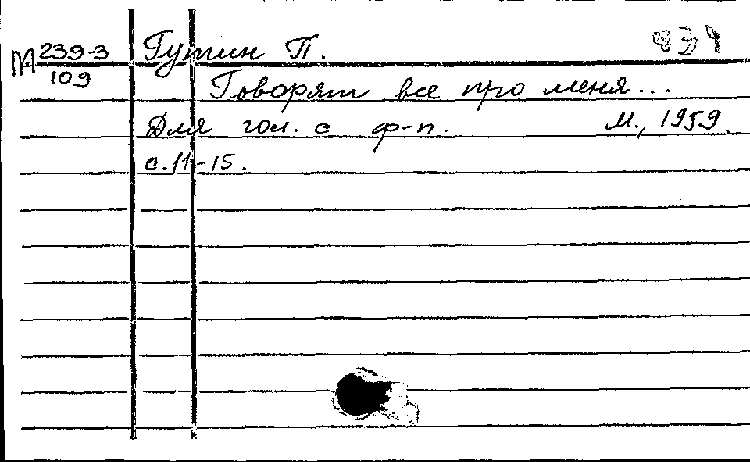 М 239-3
109
Гутин П. 939
Говорят все про меня...
Для гол. с ф-п. М., 1959.
с. 11-15.